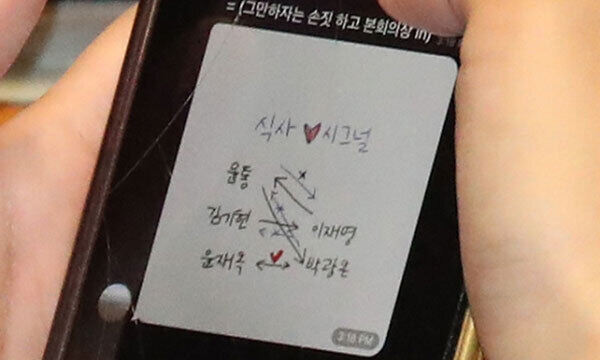 = (그만하자는 손짓 하고 본회의장 in)
식사 ♥ 시그널
윤통
김기현 이재명
윤재옥 ♥ 박광온
3:18 PM